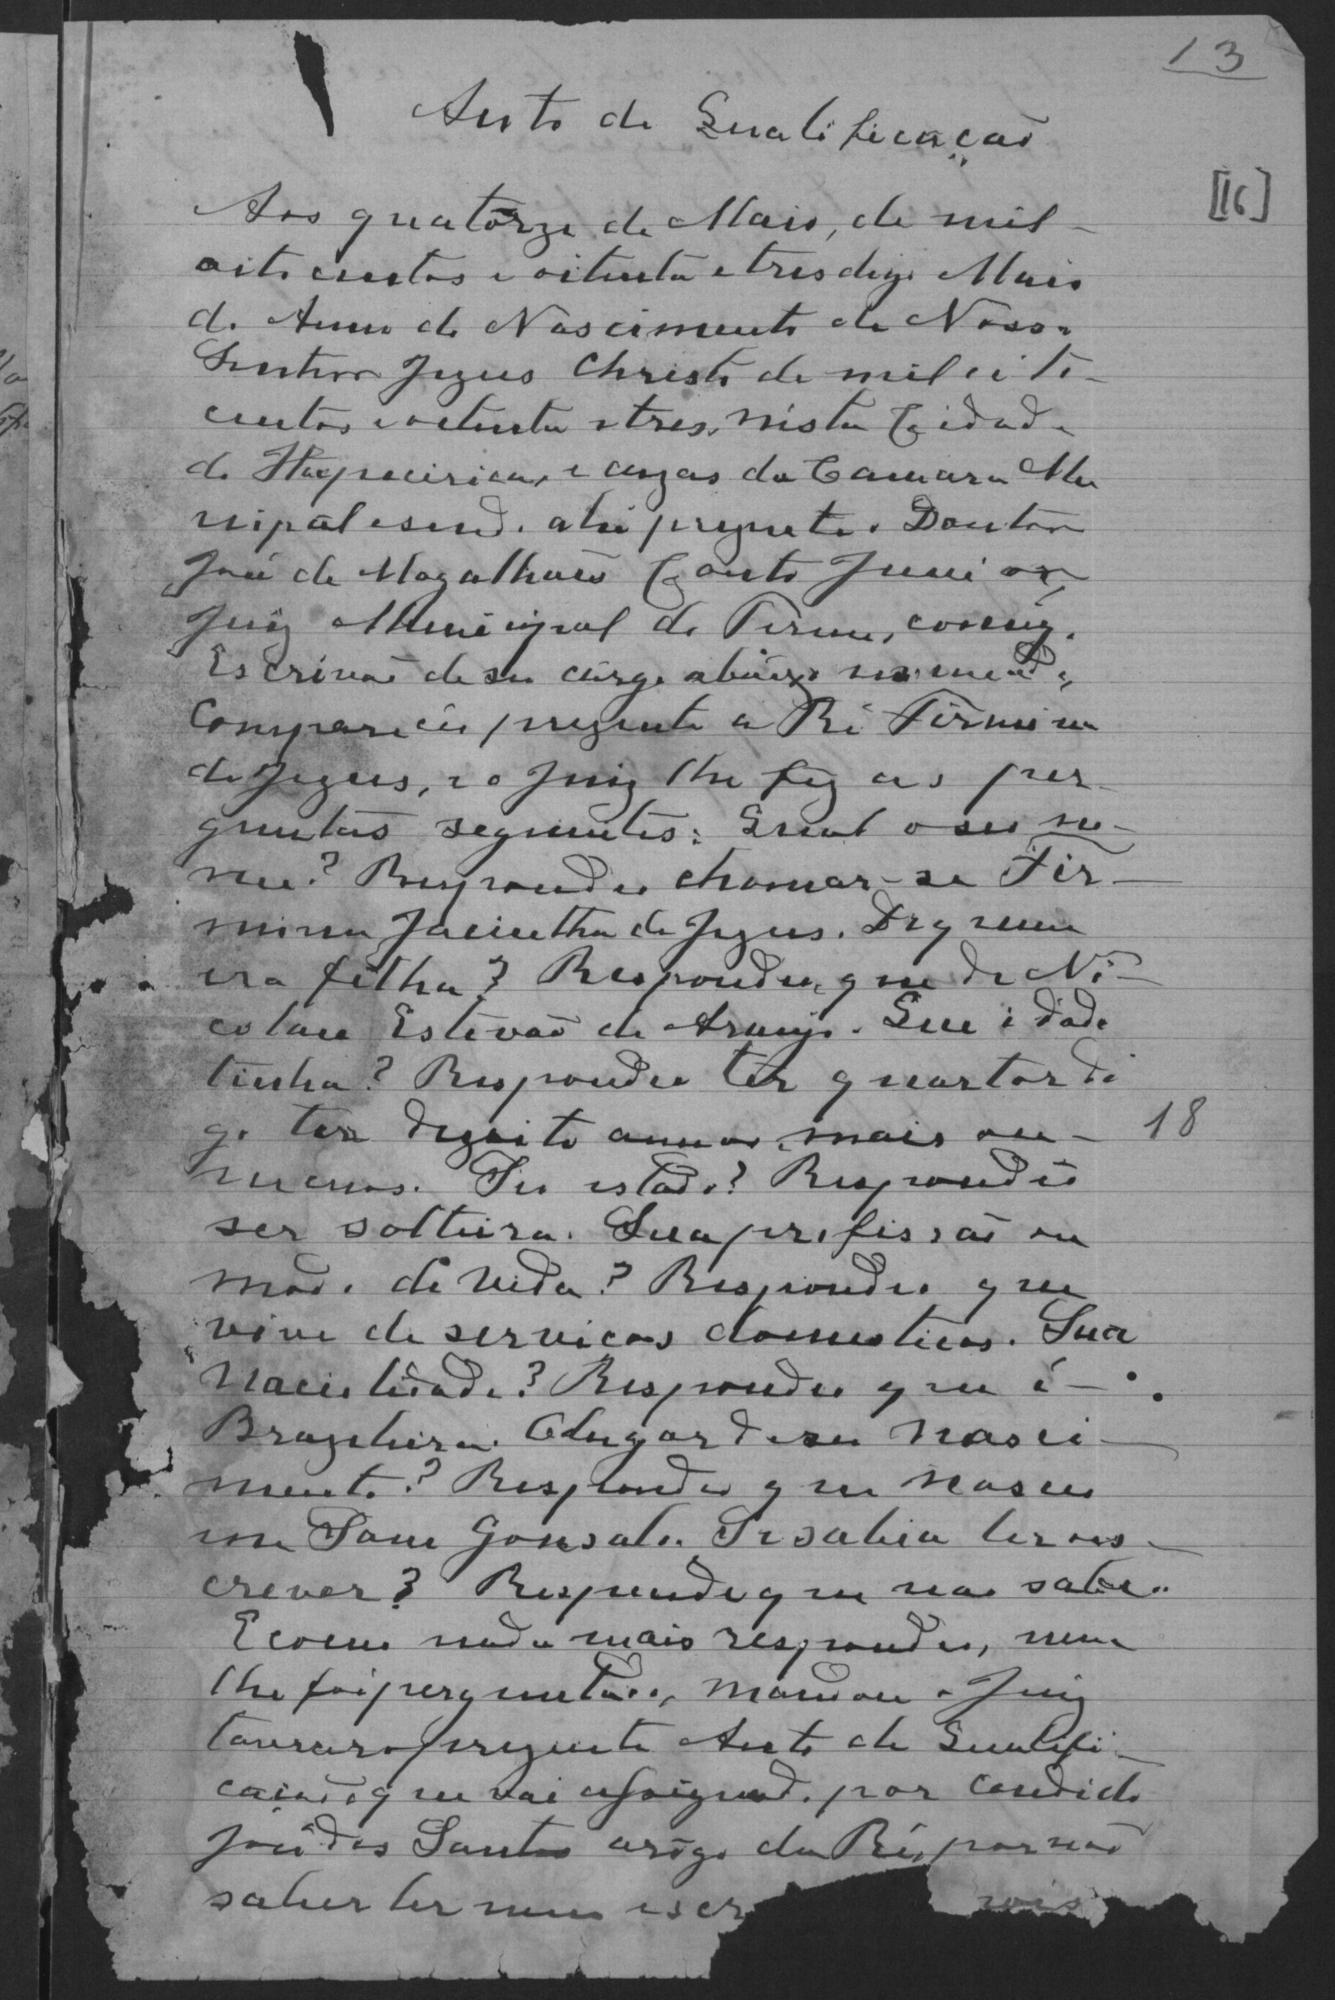 13
Auto de Qualificação
[16]
Aos quatorze de Maio, de mil
oito centos e oitenta e tres digo Maio
do Anno do Nascimento de Nosso
Senhor Jezus Christo de mil oito
centos e oitenta e tres, nésta Cidade
de Itapecirica, e cazas da Camara Mu
nipal e sendo ahi prezente o Doutor
José de Magalhães Couto Junior,
Juiz Municipal do Termo, comigo
Escrivão de seu cargo abáixo nomeado,
Compareceo prezente a Ré Firmina
de Jezus, e o Juiz lhe fez as per-
guntas seguintes: Qual o seu no-
me? Respondeo chamar-se Fir-
mina Jacintha de Jezus. De quem
era filha? Respondeo, que de Ni-
colau Estevão de Araujo. Que idade
tinha? Respondeo ter quartor di
go ter dezoito annos, mais ou-
18
menos. Seo estado? Respondeo
ser solteira. Sua profissão ou
modo de vida? Respondeo que
vive de serviços domesticos. Sua
Nacielidade? Respondeo que é-
Brazileira. O lugar de seu nasci-
mento? Respondeo que nasceo
em Sam Gonsalo. Se sabia ler ou es-
crever? Respondeo que não sabe.
E como nada mais respondeo, nem
lhe foi perguntado, mandou o Juiz
lavrar o prezente Auto de Qualifi-
cação, que vai assignado por Candido
José dos Santos arôgo da Ré, por não
saber ler nem escr